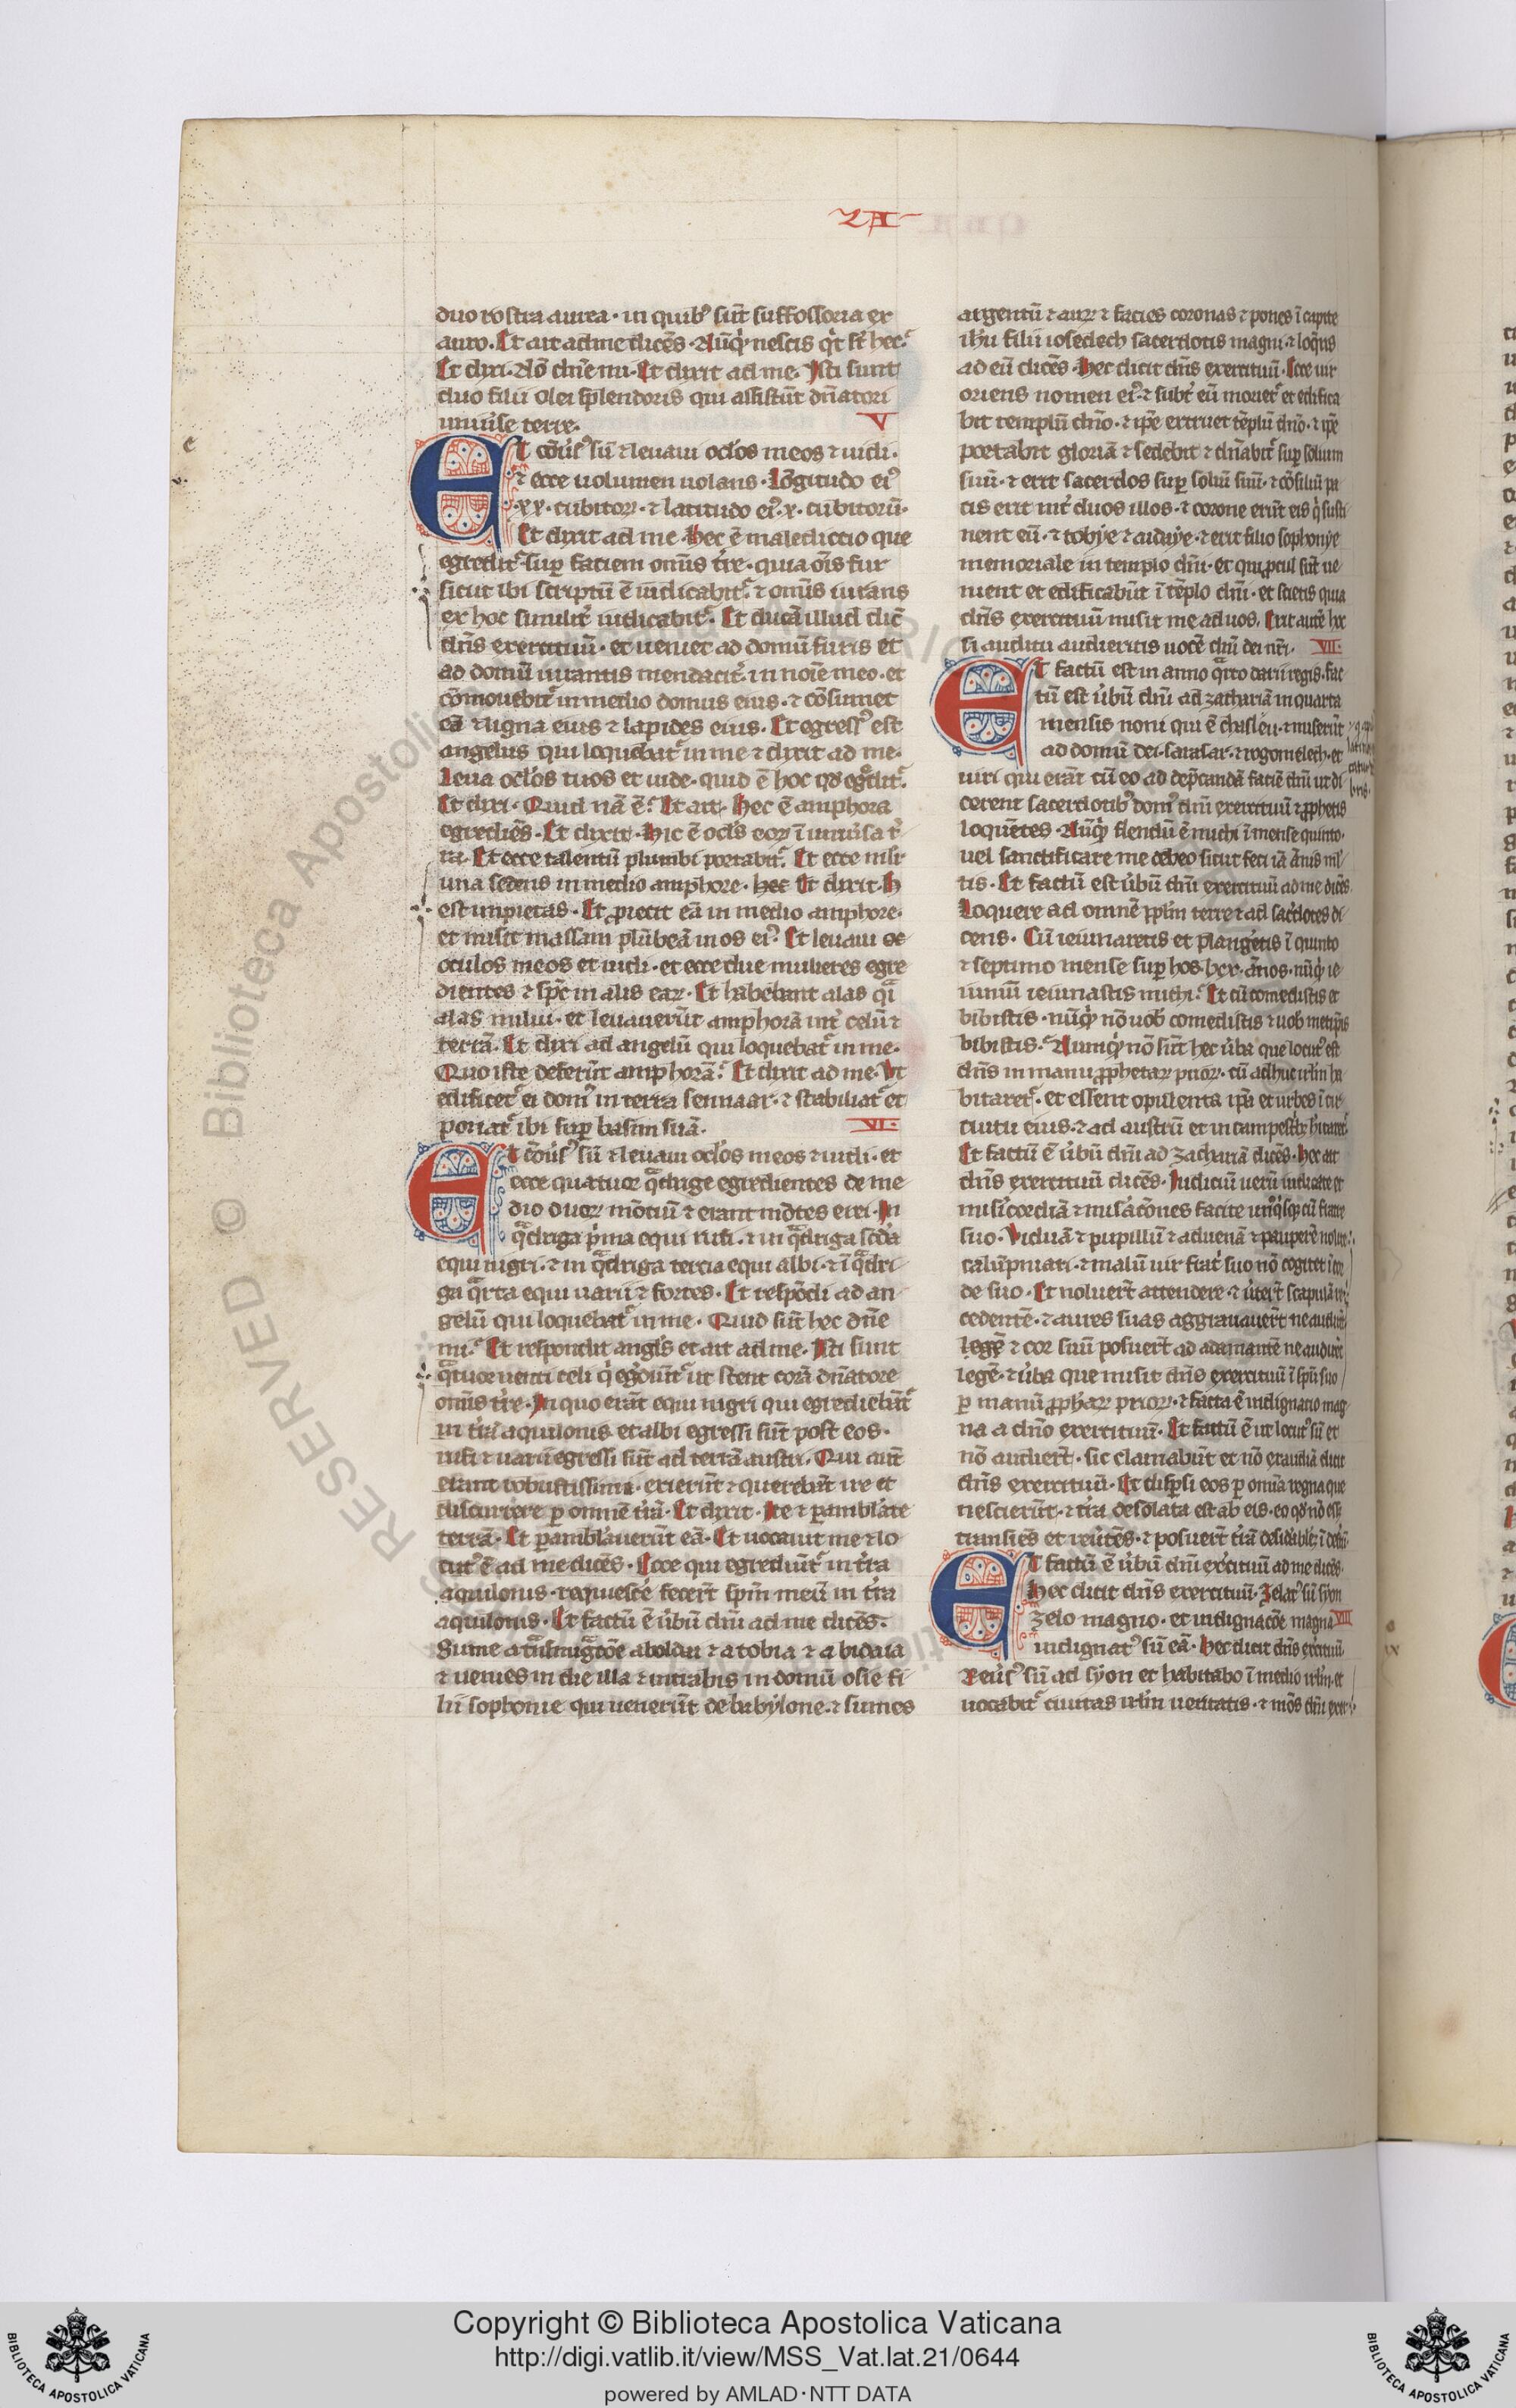 ZA
duo rostra aurea · in quib⁹ sūt suffossoria ex
auro · Et ait ad me dicēs · Nūq̇ nescis q̇t sr̄ hec ·
Et dixi · Nō dn̄e mi · Et dixit ad me · Isti sunt
duo filii olei splendoris qui assistūt dn̄atori
uniuīse terre · V
ET cōūs⁹ sū ⁊ leuaui ocłos meos ⁊ uidi ·
⁊ ecce uolumen uolans · Lōgitudo ei⁹
· xx · cubitoꝝ · ⁊ latitudo ei⁹ · x · cubitorū ·
Et dixit ad me · Hec ē malediccio que
egredit᷑ · suꝑ faciem omīs tr̄e · quia oīs fur
sicut ibi scriptū ē iudicabit᷑ · ⁊ omīs iurans
ex hoc similit᷑ iudicabit᷑ · Et ducā illud dic̄
dn̄s exercituū · et ueniet ad domū furis et
ad domū iurantis mendacit᷑ · in noīe meo · et
cōmorabit᷑ in medio domus eius · ⁊ cōsumet
eā ⁊ ligna eius ⁊ lapides eius · Et egress⁹ est
angelus qui loquebat᷑ in me ⁊ dixit ad me ·
Leua ocłos tuos et uide · quid ē hoc qd̄ eg̊dit᷑ ·
Et dixi · Quid nā ē · Et ait · Hec ē amphora
egrediēs · Et dixit · Hic ē ocłs eoꝝ ī uniūsa t᷑
ra · Et ecce talentū plumbi portabat᷑ · Et ecce mlr̄
una sedens in medio amphore · hec Et dixit · H
est impietas · Et ꝓiecit eā in medio amphore ·
et misit massam plūbeā in os ei⁹ · Et leuaui oc
oculos meos et uidi · et ecce due mulieres egre
dientes ⁊ sp̄c in alis eaꝝ · Et habebant alas qͣ
alas milui · et leuauerūt amphorā int᷑ celū ⁊
terrā · Et dixi ad angelū qui loquebat᷑ in me ·
Quo iste deferūt amphorā · Et dixit ad me · Ut
edificet᷑ ei dom⁹ in terra sennaar · ⁊ stabiliat᷑ et
ponat᷑ ibi suꝑ basim suā · VI ·
ET cōūs⁹ sū ⁊ leuaui ocłos meos ⁊ uidi · et
ecce quatuor qͣdrige egredientes de me
dio duoꝝ mōtiū ⁊ erant mōtes erei · In
qͣdriga p̄ma equi rufi · ⁊ in qͣdriga scd̄a
equi nigri · ⁊ in qͣdriga tercia equi albi · ⁊ ī qͣdri
ga qͣrta equi uarii ⁊ fortes · Et respōdi ad an
gelū qui loquebat᷑ in me · Quid sūt hec dn̄e
mi · Et respondit angłs et ait ad me · Isti sunt
qͣtuor uenti celi q̇ eg̊diūt᷑ ut stent corā dn̄atore
omīs tr̄e · In quo erāt equi nigri qui egrediebūt᷑
in tr̄ā aquilonis et albi egressi sūt post eos ·
rufi ⁊ uarii egressi sūt ad terrā austri · Qui aūt
erant robustissimi · exierūt ⁊ querebāt ire et
discurrere ꝑ omnē tr̄ā · Et dixit · Ite ⁊ ꝑambłate
terrā · Et ꝑambłauerūt eā · Et uocauit me ⁊ lo
cut⁹ ē ad me dicēs · Ecce qui egrediūt᷑ in tr̄a
aquilonis · requiescē fecer̄t spm̄ meū in tr̄a
aquilonis · Et factū ē ūbū dn̄i ad me dicēs ·
Sume a tͣnsmigͣcōe ab oldai ⁊ a tobia ⁊ a bidaia
⁊ uenies in die illa ⁊ intrabis in domū osie fi
lii sophonie qui uenerūt de babylone · ⁊ sumes
argentū ⁊ auꝝ ⁊ facies coronas ⁊ pones ī capite
ih̄u filii iosedech sacerdotis magni · ⁊ loq̄ris
ad eū dicēs · Hec dicit dn̄s exercituū · Ecce uir
oriens nomen ei⁹ · ⁊ subt᷑ eū oriet᷑ et edifica
bit templū dn̄o · ⁊ ip̄e extruet tēplū dn̄o · ⁊ ip̄e
portabit gloriā ⁊ sedebit ⁊ dn̄abit᷑ suꝑ solium
suū · ⁊ erit sacerdos suꝑ soliū suū · ⁊ cōsiliū pa
cis erit int᷑ duos illos · ⁊ corone erūt eis q̇ susti
nent eū · ⁊ tobỹe ⁊ aidaỹe · ⁊ erit filio sophonỹe
memoriale in templo dn̄i · et qui ꝓcul sūt ue
nient et edificabūt ī tēplo dn̄i · et scietis quia
dn̄s exercituū misit me ad uos · Erit autē hoc
si auditu audieritis uocē dn̄i dei nr̄i · VII ·
ET factū est in anno qͣrto darii regis · fac
tū est ūbū dn̄i ad zachariā in quarta
mensis noni qui ē chasleu · ⁊ miserūt
ad domū dei · sarasar · ⁊ rogomelech · et
uiri qui erāt cū eo ad dep̄candā faciē dn̄i ut di
cerent sacerdotib⁹ dom⁹ dn̄i exercituū ⁊ ꝓphetis
loquētes · Nūq̇ flendū ē michi ī mense quinto ·
uel sanctificare me debeo sicut feci iā ānis ml̄
tis · Et factū est ūbū dn̄i exercituū ad me dicēs
Loquere ad omnē pplm̄ terre ⁊ ad sac̄dotes di
cens · Cū ieiunaretis et plangetis ī quinto
⁊ septimo mense suꝑ hos · lxx · ānos · nūq̇ ie
iuniū ieiunastis michi · Et cū comedistis et
bibistis · nūq̇ nō uob̄ comedistis ⁊ uob̄ metip̄is
bibistis · Numq̇ nō sūt hec ūba que locut⁹ est
dn̄s in manu ꝓphetaꝝ prioꝝ · cū adhuc irłm ha
bitaret᷑ · et essent opulenta ip̄a et urbes ī cir
cuitu eius · ⁊ ad austrū et in campestib⁊ hitaret᷑
Et factū ē ūbū dn̄i ad zachariā dicēs · Hec ait
dn̄s exercituū dicēs · Iudiciū uerū iudicate et
miśicordiā ⁊ miśacōnes facite unq̇sq̇ cū fratre
suo · Viduā ⁊ pupillū ⁊ aduenā ⁊ pauperē nolite
calūpniari · ⁊ malū uir frat᷑ suo nō cogitet ī cor
de suo · Et noluer̄t attendere · ⁊ ūter̄t scapulā re
cedentē · ⁊ aures suas aggrauauer̄t ne audirēt
legē ⁊ cor suū posuer̄t ad adamantē ne audirēt
legē · ⁊ ūba que misit dn̄s exercituū ī spū suo
ꝑ manū ꝓph̄aꝝ prioꝝ · ⁊ facta ē indignatio mag
na a dn̄o exercituū · Et factū ē ut locut⁹ sū et
nō audier̄t · sic clamabūt et nō exaudiā dicit
dn̄s exercituū · Et disp̄si eos ꝑ omīa regna que
nescierūt · ⁊ tr̄a desolata est ab eis · eo qd̄ nō esset
transiēs et reūtēs · ⁊ posuer̄t tr̄ā desid̄abilē ī desertū
ET factū ē ūbū dn̄i ex̄cituū ad me dicēs ·
Hec dicit dn̄s exercituū · Zelat⁹ sū syon
zelo magno · et indignacōe magna VIII
indignat⁹ sū eā · Hec dicit dn̄s ex̄cituū ·
Reūs⁹ sū ad syon et habitabo ī medio irłm · et
uocabit᷑ ciuitas irłm ueritatis · ⁊ mōs dn̄i exer
Copyright © Biblioteca Apostolica Vaticana
http://digi.vatlib.it/view/MSS_Vat.lat.21/0644
powered by AMLAD·NTT DATA
BIBLIOTECA APOSTOLICA VATICANA
BIBLIOTECA APOSTOLICA VATICANA